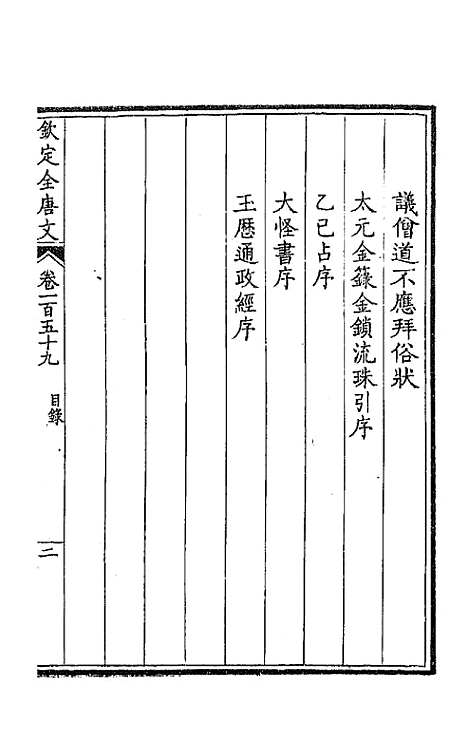 議僧道不應拜俗狀
太元金籙金鎖流珠引序
乙巳占序
大怪書序
玉厯通政經序
欽定全唐文
卷一百五十九
目錄
二